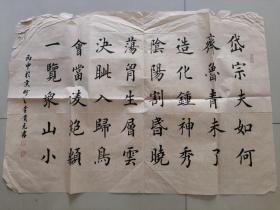 岱宗夫如何
齊魯青未了
造化鍾神秀
陰陽割昏曉
蕩胷生層雲
決眦入歸鳥
會當凌絕頂
一覽衆山小
丙申於京